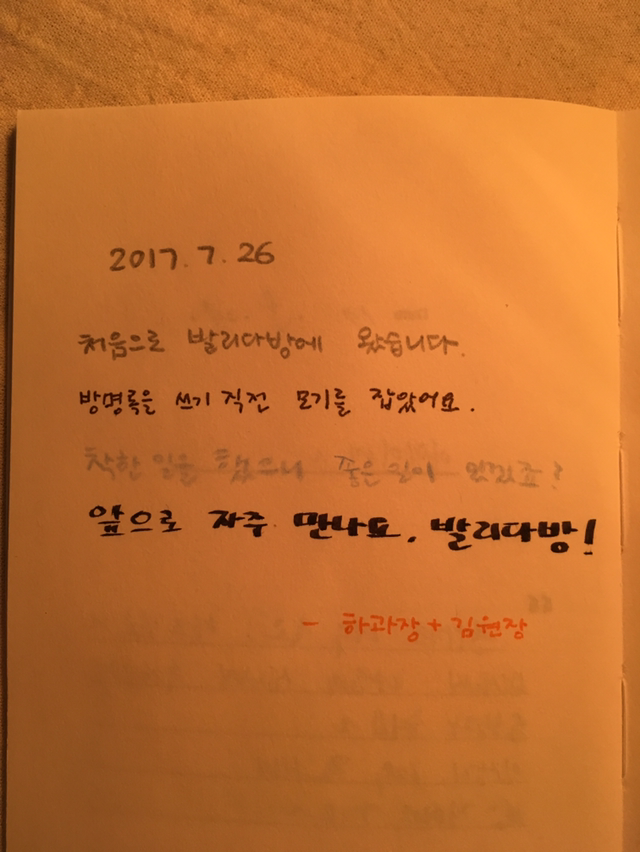 2017. 7. 26
처음으로 발리다방에 왔습니다.
방명록을 쓰기 직전 모기를 잡았어요.
착한 일을 했으니 좋은 일이 있겠죠?
앞으로 자주 만나요, 발리다방!
- 하과장 + 김원장